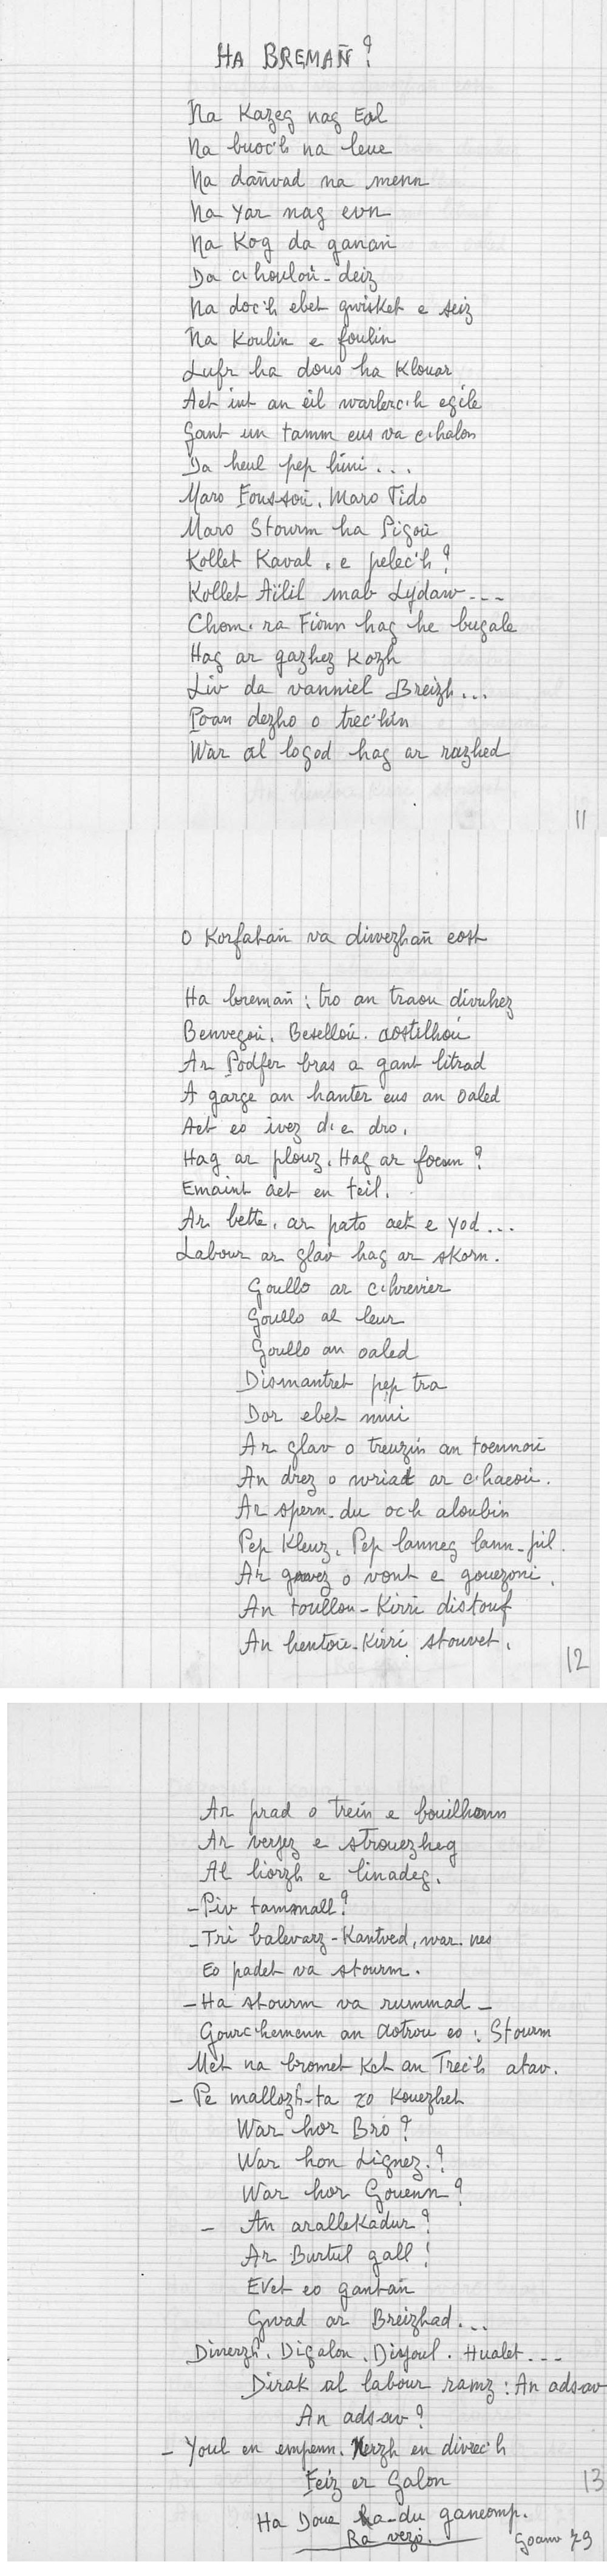 HA BREMAÑ ?
Na Kazeg nag Eal
Na buoc'h na leue
Na dañvad na menn
Na Yar nag evn
Na Kog da ganañ
Da c'houloù-deiz
Na doc'h ebet gwisket e seiz
Na Koulin e foulin
Lufr ha dous ha Klouar
Aet int an eil warlerc'h egile
Gant un tamm eus va c'halon
Da heul pep hini...
Maro Foussoù, Maro Tido
Maro Stourm ha Pigoù
Kollet Kaval, e pelec'h ?
Kollet Aïlil mab Lydaw...
Chom ra Fionn hag he bugale
Hag ar gazhez Kozh
Liv da vanniel Breizh...
Poan dezho o trec'hiñ
War al logod hag ar razhed
11
O Korfatañ va divezhañ eost
Ha bremañ : tro an traou divuhez
Benvegoù, Beselloù, aostilhoù
Ar Podfer bras a gant litrad
A garge an hanter eus an Oaled
Aet eo ivez d'e dro.
Hag ar plouz, Hag ar foenn ?
Emaint aet en teil.
Ar bette, ar pato aet e yod...
Labour ar glav hag ar skorn.
Goullo ar c'hrevier
Goullo al leur
Goullo an oaled
Dismantret pep tra
Dor ebet mui
Ar glav o treuziñ an toennoù
An drez o wriat ar c'haeoù.
Ar spern-du och aloubiñ
Pep Kleuz, Pep lanneg lann-pil.
Ar gwez o vont e gouezoni,
An toullou-Kirri distouf
An hentoù-Kirri stouvet.
12
Ar prad o treiñ e bouilhenn
Ar verjez e strouezheg
Al liorzh e linadeg.
-Piv tamanall ?
-Tri balevarz-Kantved, war nes
Eo padet va stourm.
-Ha stourm va rummad-
Gourc'hemenn an Aotrou eo : Stourm
Met na bromet Ket an Trec'h atav.
- Pe mallozh-ta zo Kouezhet
War hor Bro ?
War hon Lignez ?
War hor Gouenn ?
- An arallekadur ?
Ar Burtul gall !
Evet eo gantañ
Gwad ar Breizhad...
Dinerzh, Digalon, Diyoul, Hualet...
Dirak al labour ramz : An adsav
An adsav ?
- Youl en empenn, Nerzh en divrec'h
Feiz er Galon
Ha Doue ha-du ganeomp.
Ra vezo.
Goanv 79
13